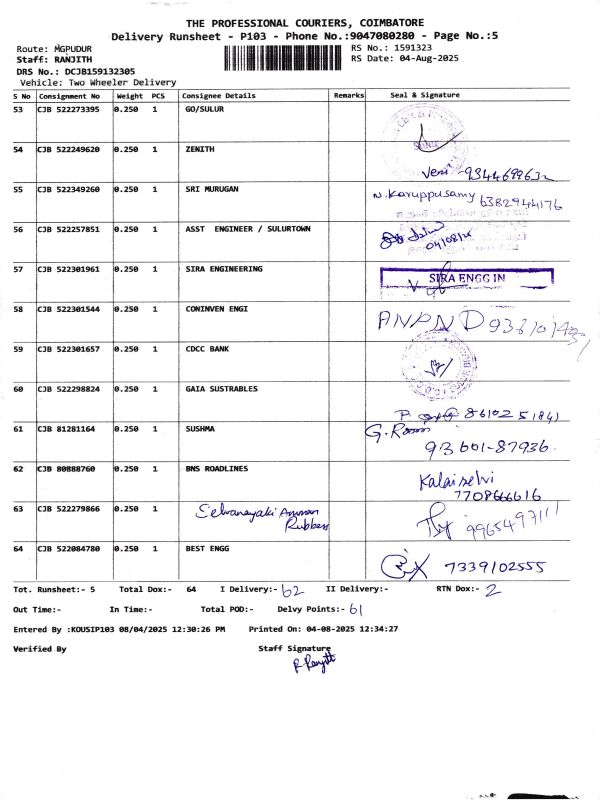 THE PROFESSIONAL COURIERS, COIMBATORE
Delivery Runsheet - P103 - Phone No.:9047080280 - Page No.:5
Route: MGPUDUR RS No.: 1591323
Staff: RANJITH RS Date: 04-Aug-2025
DRS No.: DCJB159132305
Vehicle: Two Wheeler Delivery
S No Consignment No Weight PCS Consignee Details Remarks Seal & Signature
53 CJB 522273395 0.250 1 GO/SULUR
54 CJB 522249620 0.250 1 ZENITH
Veni -9344699632
55 CJB 522349260 0.250 1 SRI MURUGAN N. Karuppusamy 6382944176
56 CJB 522257851 0.250 1 ASST ENGINEER / SULURTOWN
04/08/25
57 CJB 522301961 0.250 1 SIRA ENGINEERING SIRA ENGG IN
58 CJB 522301544 0.250 1 CONINVEN ENGI ANAND
59 CJB 522301657 0.250 1 CDCC BANK
60 CJB 522298824 0.250 1 GAIA SUSTRABLES
P. 8610251841
61 CJB 81281164 0.250 1 SUSHMA G. Raman
93601-87936.
62 CJB 80888760 0.250 1 BNS ROADLINES Kalaiselvi
7708666616
63 CJB 522279866 0.250 1 Selvanayaki Amman 9965497111
Rubbers
64 CJB 522084780 0.250 1 BEST ENGG 7339102555
Tot. Runsheet:- 5 Total Dox:- 64 I Delivery:- 62 II Delivery:- RTN Dox:- 2
Out Time:- In Time:- Total POD:- Delvy Points:- 61
Entered By :KOUSIP103 08/04/2025 12:30:26 PM Printed On: 04-08-2025 12:34:27
Verified By Staff Signature